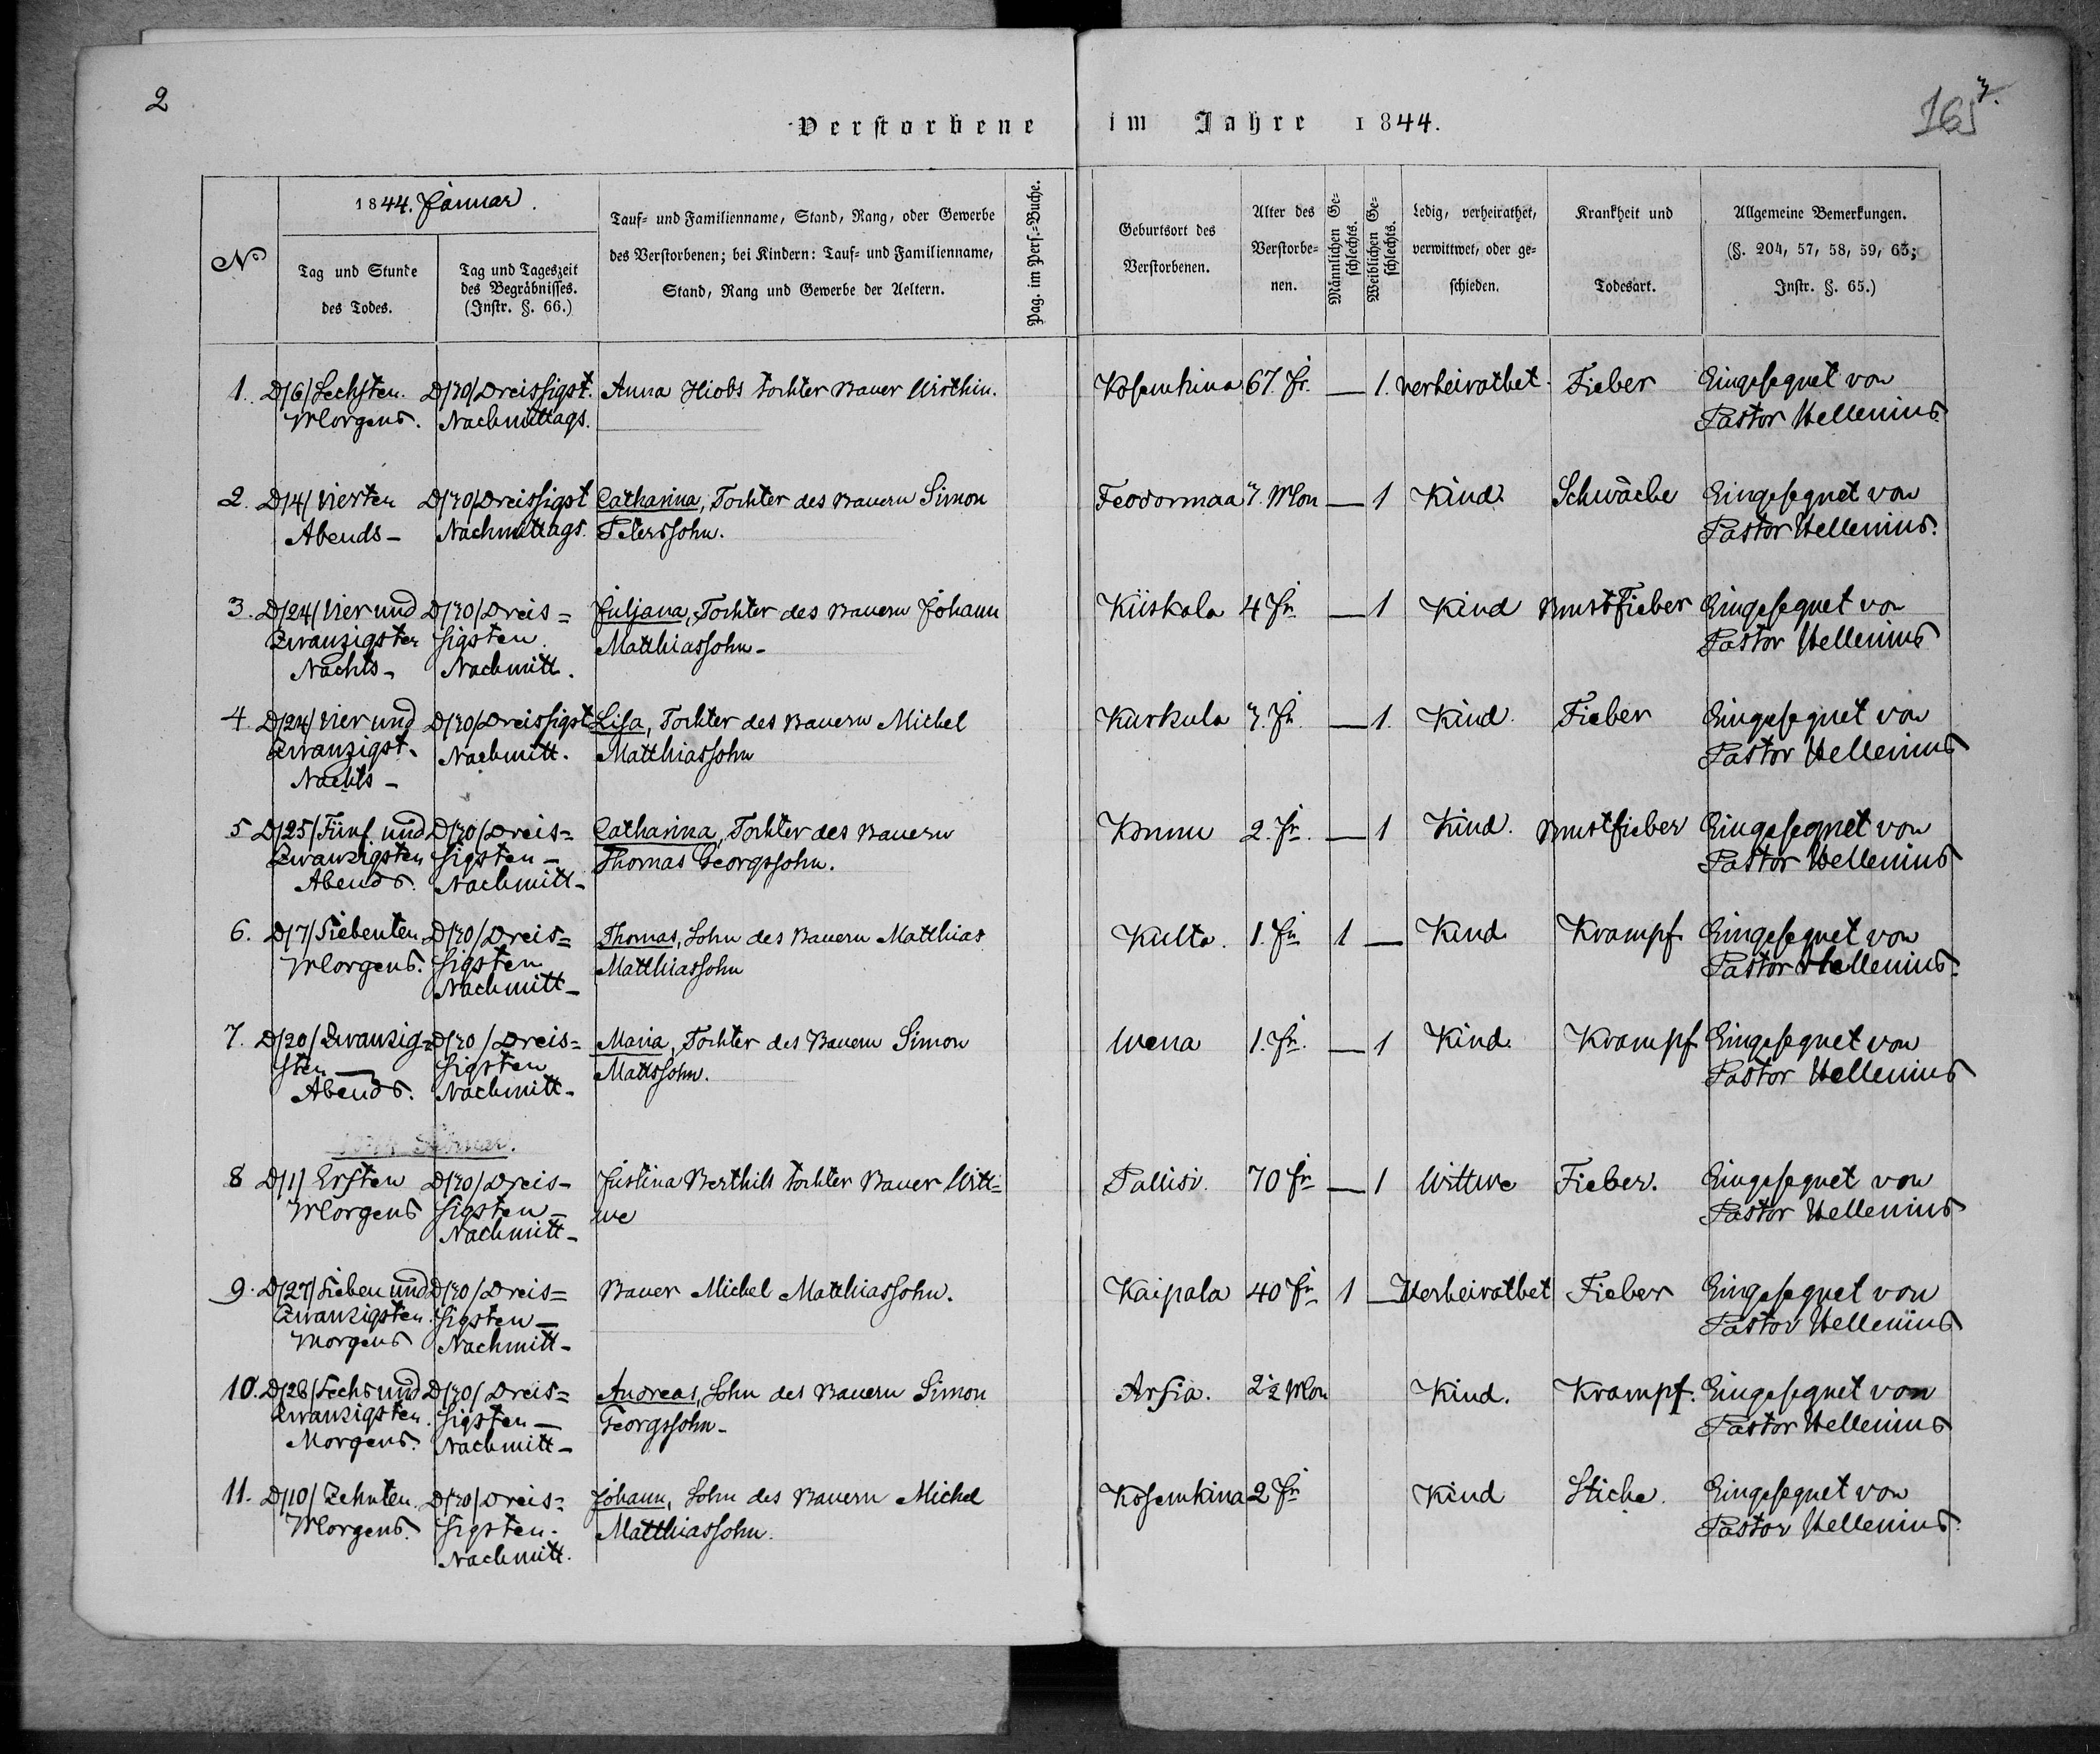 2
Verstorbene im Jahre 1844.
165
3.
No
1844. Januar.
Tag und Stunde des Todes.
Tag und Tageszeit des Begräbnisses. (Instr. §. 66.)
Tauf- und Familienname, Stand, Rang, oder Gewerbe
des Verstorbenen; bei Kindern: Tauf- und Familienname,
Stand, Rang und Gewerbe der Aeltern.
Pag. im Pers.-Buche.
Geburtsort des Verstorbenen.
Alter des Verstorbe-nen.
Männlichen Ge-schlechts.
Weiblichen Ge-schlechts.
Ledig, verheirathet, verwittwet, oder ge-schieden.
Krankheit und Todesart.
Allgemeine Bemerkungen.
(§. 204, 57, 58, 59, 63; Instr. §. 65.)
1. D/6/ Sechsten. D/30/ Dreissigst. Anna Hiobs tochter Bauer Wirthin. Kosemkina 67. Jr. — 1. verheirathet. Fieber Eingesegnet von
Morgens. Nachmittags. Pastor Hellenius.
2. D/4/ Vierten D/30/ Dreissigst Catharina, Tochter des Bauern Simon Feodormaa 3. Mon — 1 Kind. Schwäche Eingesegnet von
Abends — Nachmittags. Peterssohn. Pastor Hellenius.
3. D/24/ Vier und D/30/ Dreis= Juljana, Tochter des Bauern Johann Kiiskala 4 Jr — 1 Kind Brustfieber Eingesegnet von
Zwanzigsten sigsten Matthiassohn — Pastor Hellenius
Nachts — Nachmitt.
4. D/24/ Vier und D/30/ Dreissigst Lisa, Tochter des Bauern Michel Kurkula 3. Jr. — 1. Kind. Fieber Eingesegnet von
Zwanzigst. Nachmitt. Matthiassohn Pastor Hellenius
Nachts —
5 D/25/ Fünf und D/30/ Dreis= Catharina, Tochter des Bauern Konnu 2. Jr. — 1 Kind. Brustfieber Eingesegnet von
Zwanzigsten sigsten — Thomas Georgssohn. Pastor Hellenius
Abends. Nachmitt —
6. D/7/ Siebenten D/30/ Dreis= Thomas, Sohn des Bauern Matthias Kulta. 1. Jr 1 — Kind Krampf Eingesegnet von
Morgens. sigsten Matthiassohn Pastor Hellenius.
Nachmitt —
7. D/20/ Zwanzig= D/30/ Dreis= Maria, Tochter des Bauern Simon Wena 1. Jr. — 1 Kind. Krampf Eingesegnet von
sten — sigsten Mattssohn. Pastor Hellenius
Abends. Nachmitt —
8 D/1/ Ersten D/30/ Dreis— Justina Berthils tochter Bauer Witt= Pallisi. 70 Jr — 1 Wittwe Fieber. Eingesegnet von
Morgens sigsten — we Pastor Hellenius
Nachmitt —
9. D/27/ Sieben und D/30/ Dreis= Bauer Michel Matthiassohn. Kaipala 40 Jr 1 — Verheirathet Fieber Eingesegnet von
Zwanzigsten. sigsten — Pastor Hellenius
Morgens Nachmitt —
10. D/26/ Sechs und D/30/ Dreis= Andreas, Sohn des Bauern Simon Arsia. 2½ Mon Kind. Krampf. Eingesegnet von
Zwanzigsten. sigsten — Georgssohn — Pastor Hellenius
Morgens. Nachmitt —
11. D/10/ Zehnten D/30/ Dreis= Johann, Sohn des Bauern Michel Kosemkina 2 Jr Kind Stiche. Eingesegnet von
Morgens. sigsten. Matthiassohn. Pastor Hellenius.
Nachmitt.